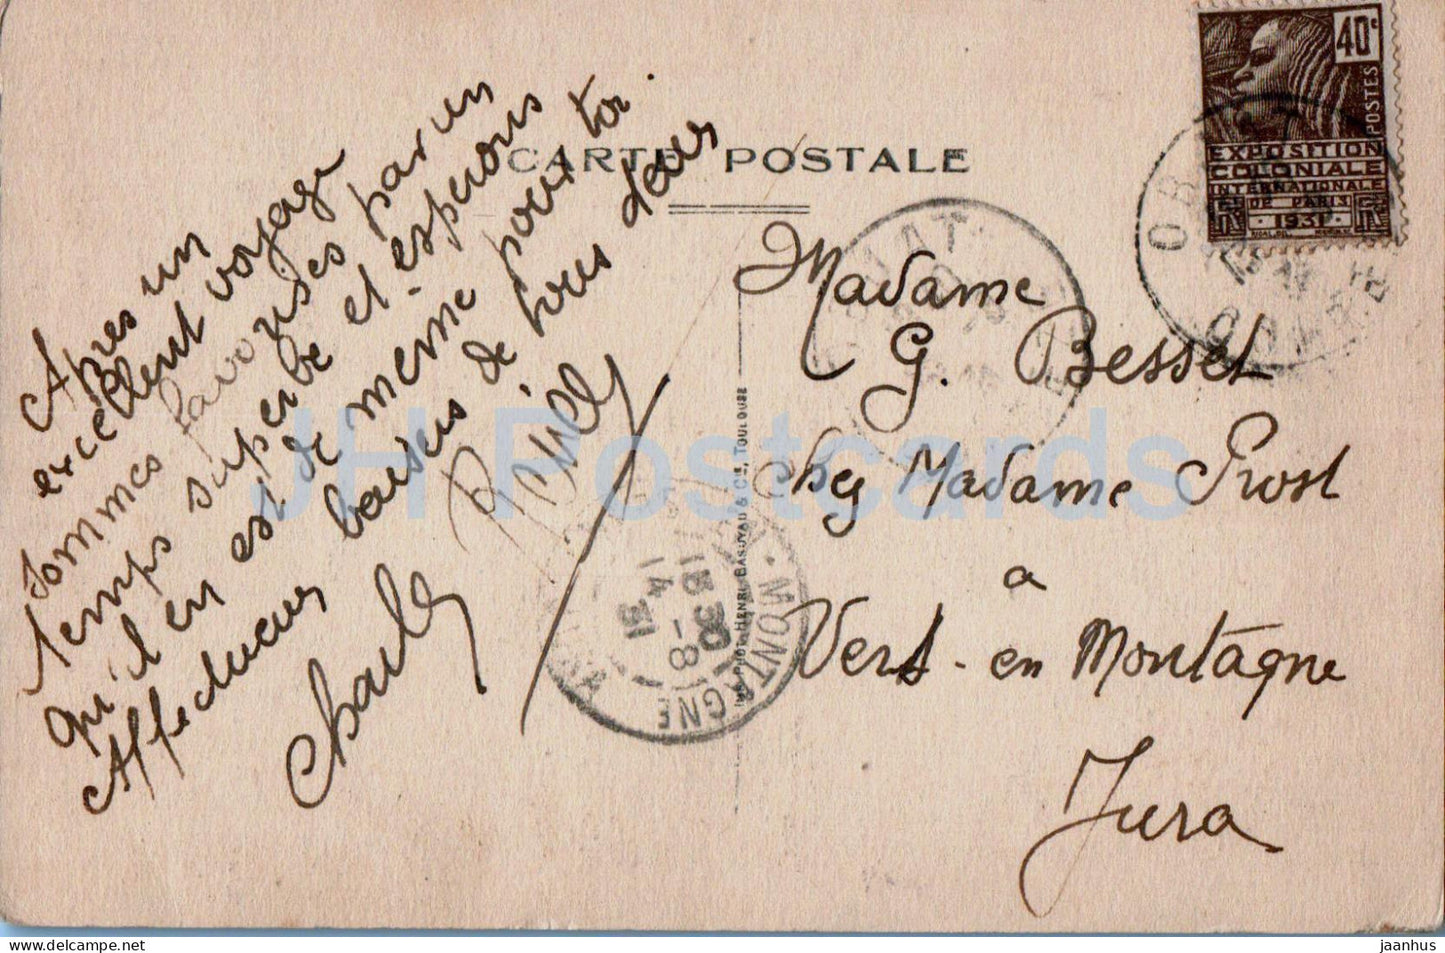 CARTE POSTALE
40c
POSTES
EXPOSITION
COLONIALE
INTERNATIONALE
DE PARIS
1931
Apres un
excellent voyage
sommes favorises par un
temps superbe et esperons
qu'il en est de meme pour toi.
Affectueux baisers de tous deux
Charles
Madame
G. Besset
chez Madame Prost
a
Vers-en Montagne
Jura
MONTAGNE
15 30
1-8
31
PHOT. HENRI BASUYAU & CIE, TOULOUSE
JH Postcards
jaanhus
www.delcampe.net